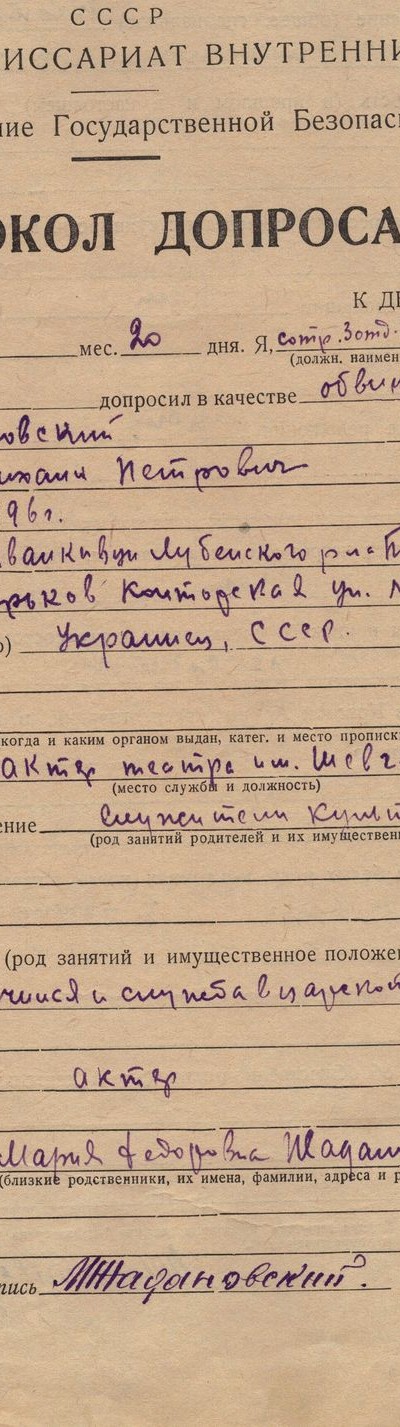 СССР
ИССАРИАТ ВНУТРЕННИ
ние Государственной Безопасн
ОКОЛ ДОПРОСА
К ДЕ
мес. 20 дня. Я, сотр. 3 отд.
(должн. наимен
допросил в качестве обвин
овский
ихаил Петрович
96 г.
Лубенского р-на П
рьков Конторская ул. №
о) Украинец, СССР.
когда и каким органом выдан, катег. и место прописк
актер театра им. Шевч
(место службы и должность)
ение Служители культ
(род занятий родителей и их имуществен
(род занятий и имущественное положен
чийся и служба в царской
актер
Мария Федоровна Жадан
(близкие родственники, их имена, фамилии, адреса и р
пись МЖадановский.